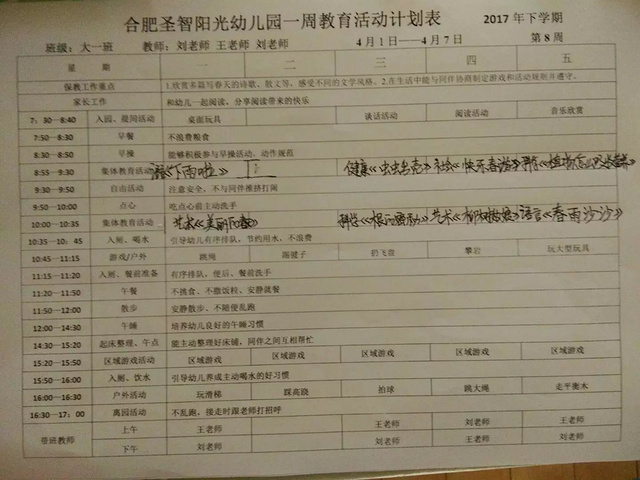 合肥圣智阳光幼儿园一周教育活动计划表 2017年下学期
班级：大一班 教师：刘老师 王老师 刘老师 4月1日——4月7日 第8周
星期 一 二 三 四 五
保教工作重点 1.欣赏多篇写春天的诗歌、散文等，感受不同的文学风格。2.在生活中能与同伴协商制定游戏和活动规则并遵守。
家长工作 和幼儿一起阅读，分享阅读带来的快乐
7：30—8:40 入园、晨间活动 桌面玩具 谈话活动 阅读活动 音乐欣赏
7:50—8:30 早餐 不浪费粮食
8:30—8:50 早操 能够积极参与早操活动、动作规范
8:55—9:30 集体教育活动 《下雨啦》 健康《虫虫出壳》社会《快乐春游》科学
9:30—9:50 自由活动 注意安全，不与同伴推挤打闹
9:50—10:00 点心 吃点心前主动洗手
10:00—10:35 集体教育活动 艺术《美丽的春》 科学 艺术 语言《春雨沙沙》
10:35—10：45 入厕、喝水 引导幼儿有序排队，节约用水，不浪费
10:45—11:15 游戏/户外 跳绳 踢毽子 扔飞盘 攀岩 玩大型玩具
11:15—11:20 入厕、餐前准备 有序排队，便后、餐前洗手
11:20—11:50 午餐 不挑食、不撒饭粒、安静就餐
11:50—12:00 散步 安静散步、不随便乱跑
12:00—14:30 午睡 培养幼儿良好的午睡习惯
14:30—15:20 起床整理、午点 能主动整理好床铺，同伴之间互相帮忙
15:20—15:50 区域游戏活动 区域游戏 区域游戏 区域游戏 区域游戏 区域游戏
15:50—16:00 入厕、饮水 引导幼儿养成主动喝水的好习惯
16:00—16:30 户外活动 玩滑梯 踩高跷 拍球 跳大绳 走平衡木
16:30—17：00 离园活动 不乱跑，接走时跟老师打招呼
带班教师 上午 王老师 王老师 刘老师 王老师
下午 刘老师 刘老师 王老师 刘老师